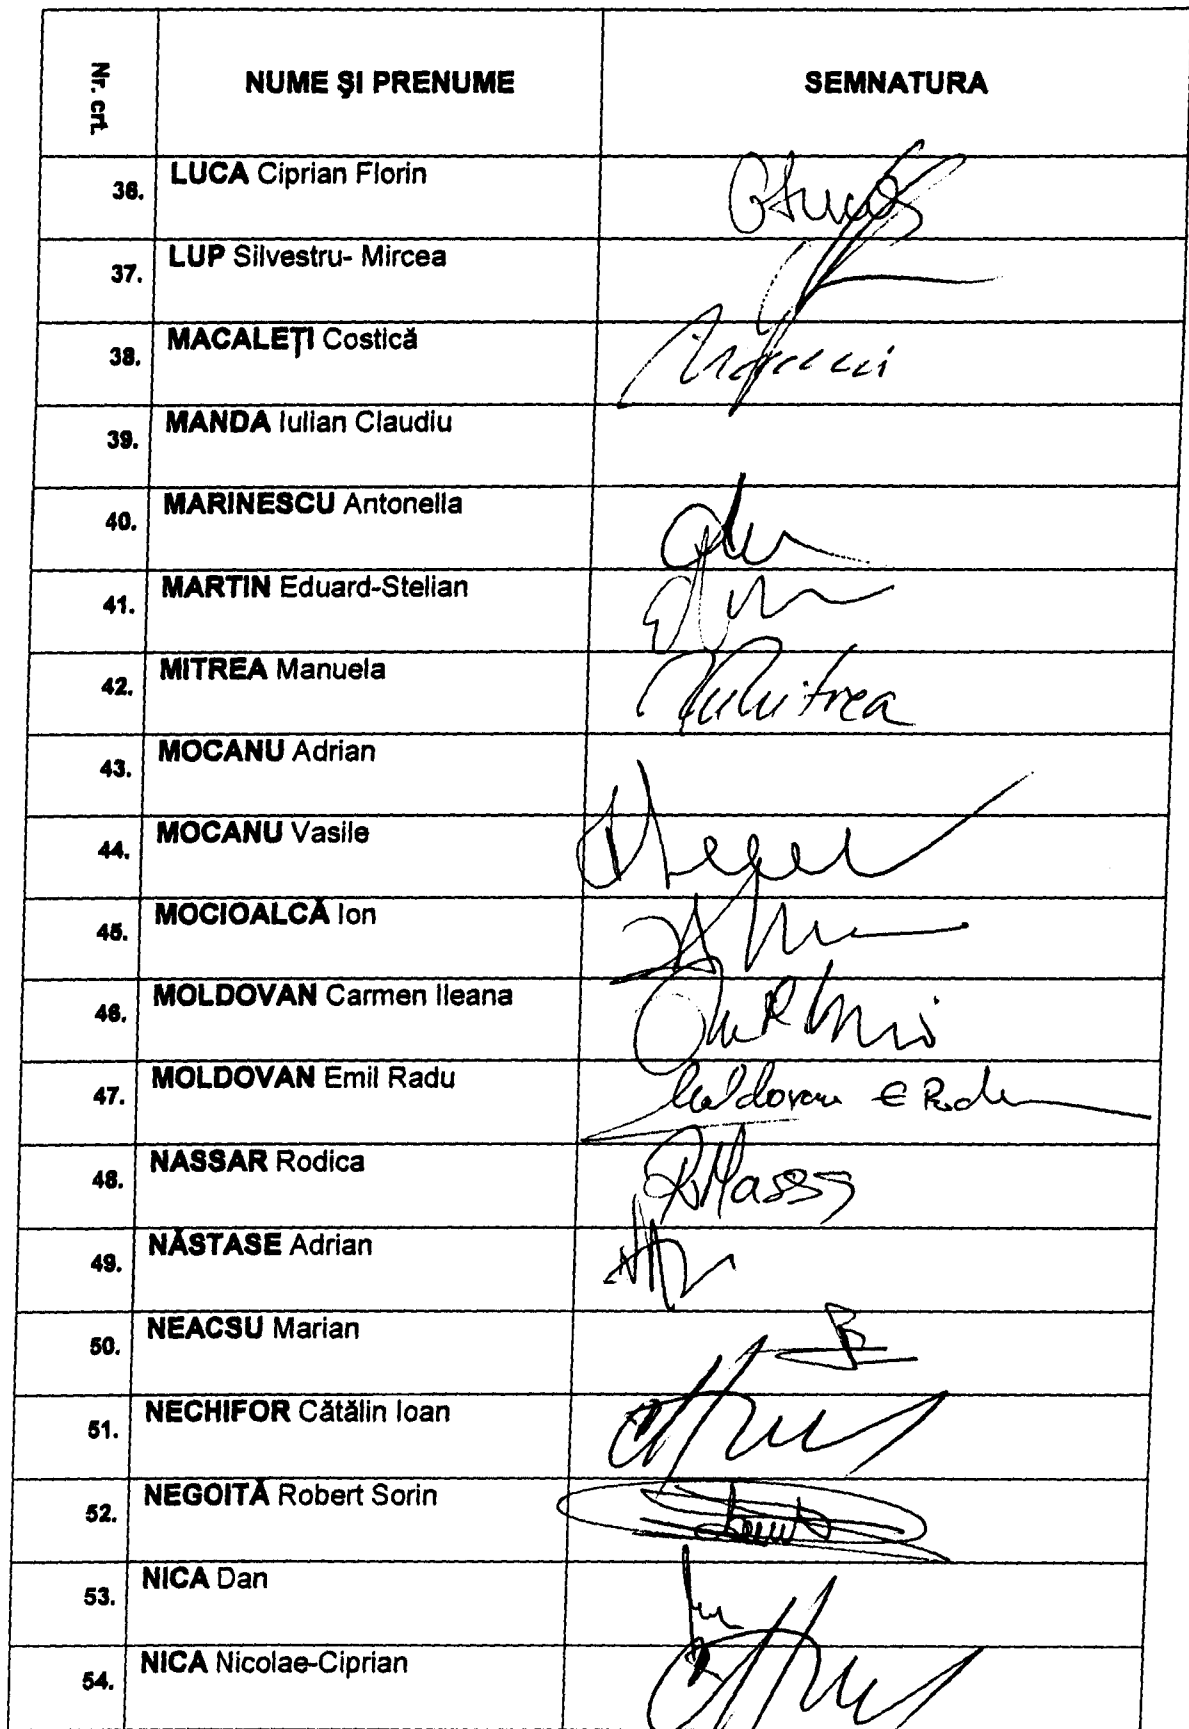 Nr. crt. NUME ŞI PRENUME SEMNATURA
36. LUCA Ciprian Florin
37. LUP Silvestru- Mircea
38. MACALEŢI Costică
39. MANDA Iulian Claudiu
40. MARINESCU Antonella
41. MARTIN Eduard-Stelian
42. MITREA Manuela Mitrea
43. MOCANU Adrian
44. MOCANU Vasile
45. MOCIOALCĂ Ion
46. MOLDOVAN Carmen Ileana
47. MOLDOVAN Emil Radu Moldovan E Radu
48. NASSAR Rodica
49. NĂSTASE Adrian
50. NEACSU Marian
51. NECHIFOR Cătălin Ioan
52. NEGOITĂ Robert Sorin
53. NICA Dan
54. NICA Nicolae-Ciprian